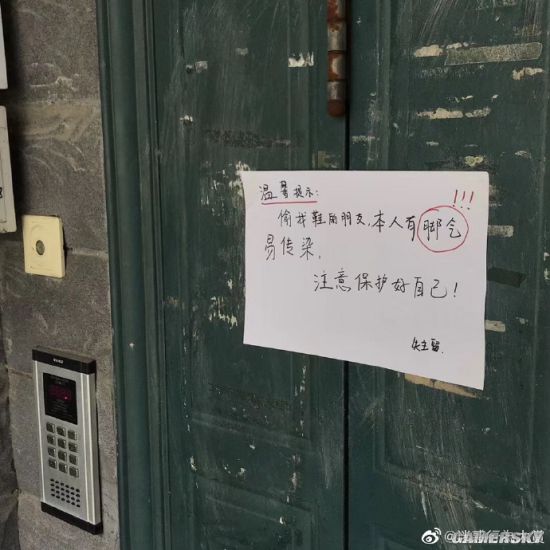 温馨提示:
!!!
偷我鞋的朋友,本人有脚气
易传染,
注意保护好自己!
失主留.
GAMERSKY